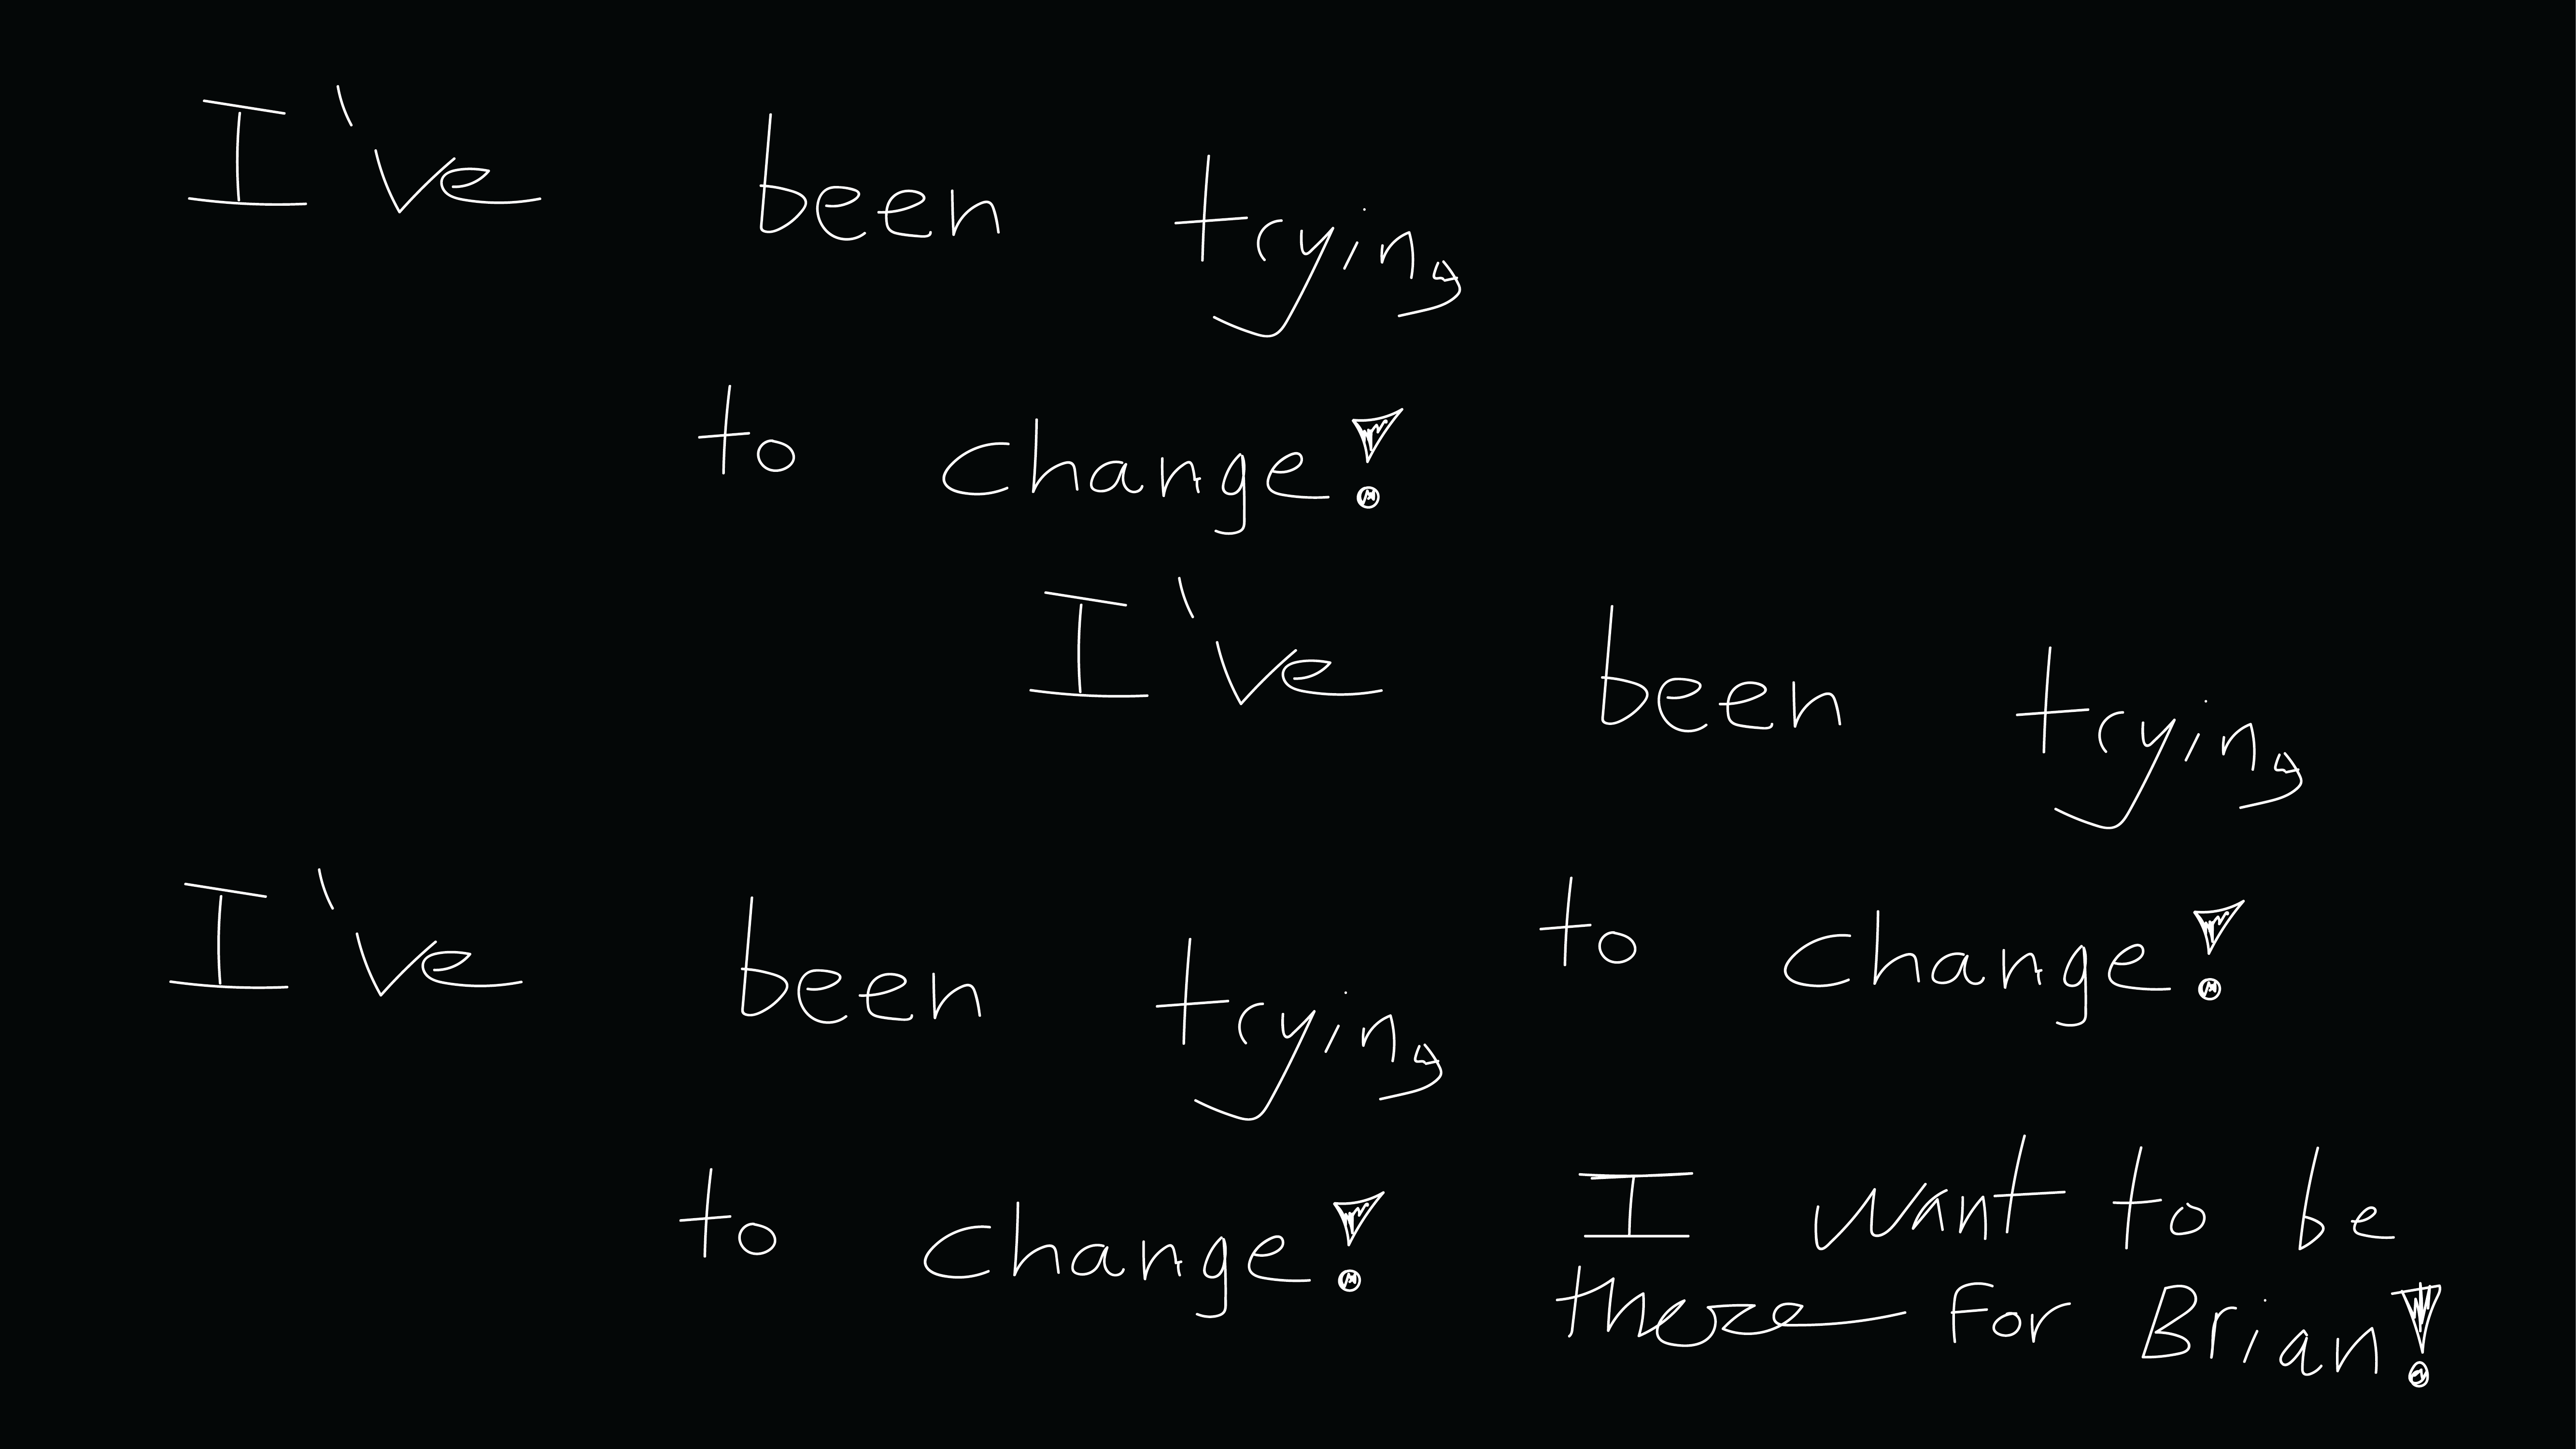 I've been trying
to change!
I've been trying
to change!
I've been trying
to change!
I want to be
there for Brian!